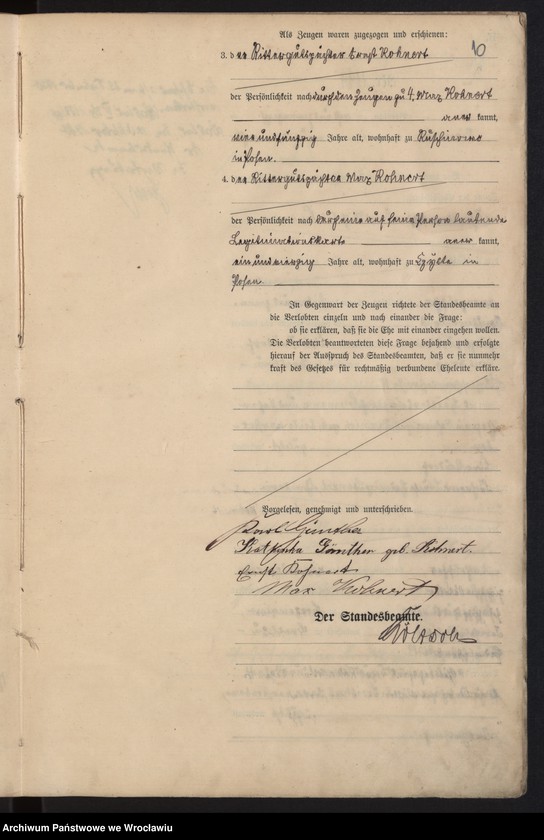 Als Zeugen waren zugezogen und erschienen:
10
3. der Rittergutspächter Ernst Kohnert
der Persönlichkeit nach durch den Zeugen zu 4, Max Kohnert
aner kannt,
Jahre alt, wohnhaft zu
in Posen.
4. der Rittergutspächter Max Kohnert
der Persönlichkeit nach durch eine auf seine Person lautende
Legitimationskarte aner kannt,
einundvierzig Jahre alt, wohnhaft zu in
Posen.
In Gegenwart der Zeugen richtete der Standesbeamte an
die Verlobten einzeln und nach einander die Frage:
ob sie erklären, daß sie die Ehe mit einander eingehen wollen.
Die Verlobten beantworteten diese Frage bejahend und erfolgte
hierauf der Ausspruch des Standesbeamten, daß er sie nunmehr
kraft des Gesetzes für rechtmäßig verbundene Eheleute erkläre.
Vorgelesen, genehmigt und unterschrieben.
Karl Günther
Günther geb. Kohnert.
Ernst Kohnert
Max Kohnert
Der Standesbeamte.
Archiwum Państwowe we Wrocławiu